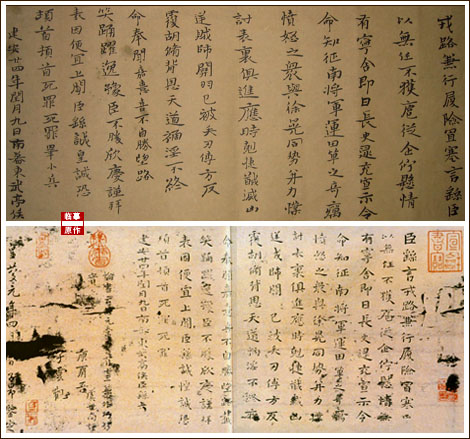 戎路無行履險冒寒言繇臣
以無任不獲扈從企佇懸情
有寧舍即日長史逯充宣示令
命知征南將軍運田單之奇厲
憤怒之衆與徐晃同勢并力撲
討表裏俱進應時剋捷馘滅凶
逆賊帥關羽已被矢刃傅方反
覆胡脩背恩天道禍淫不終
命奉聞嘉憙喜不自勝望路
笑踊躍逸豫臣不勝欣慶謹拜
表因便宜上聞臣繇誠皇誠恐
頓首頓首死罪死罪畢小兵
建安廿四年閏月九日南蕃東武亭侯
临摹
原作
臣繇言戎路無行履險冒寒
以無任不獲扈從企佇懸情無
有寧舍即日長史逯充宣示令
命知征南將軍運田單之奇厲
憤怒之衆與徐晃同勢并力撲
討表裏俱進應時剋捷馘滅凶
逆賊帥關羽已被矢刃傅方反
覆胡脩背恩天道禍淫不終
命奉聞嘉憙喜不自勝望路載
笑踊躍逸豫臣不勝欣慶謹拜
表因便宜上聞臣繇誠惶誠恐
頓首頓首死罪死罪
建安廿四年閏月九日南蕃東武亭侯臣繇